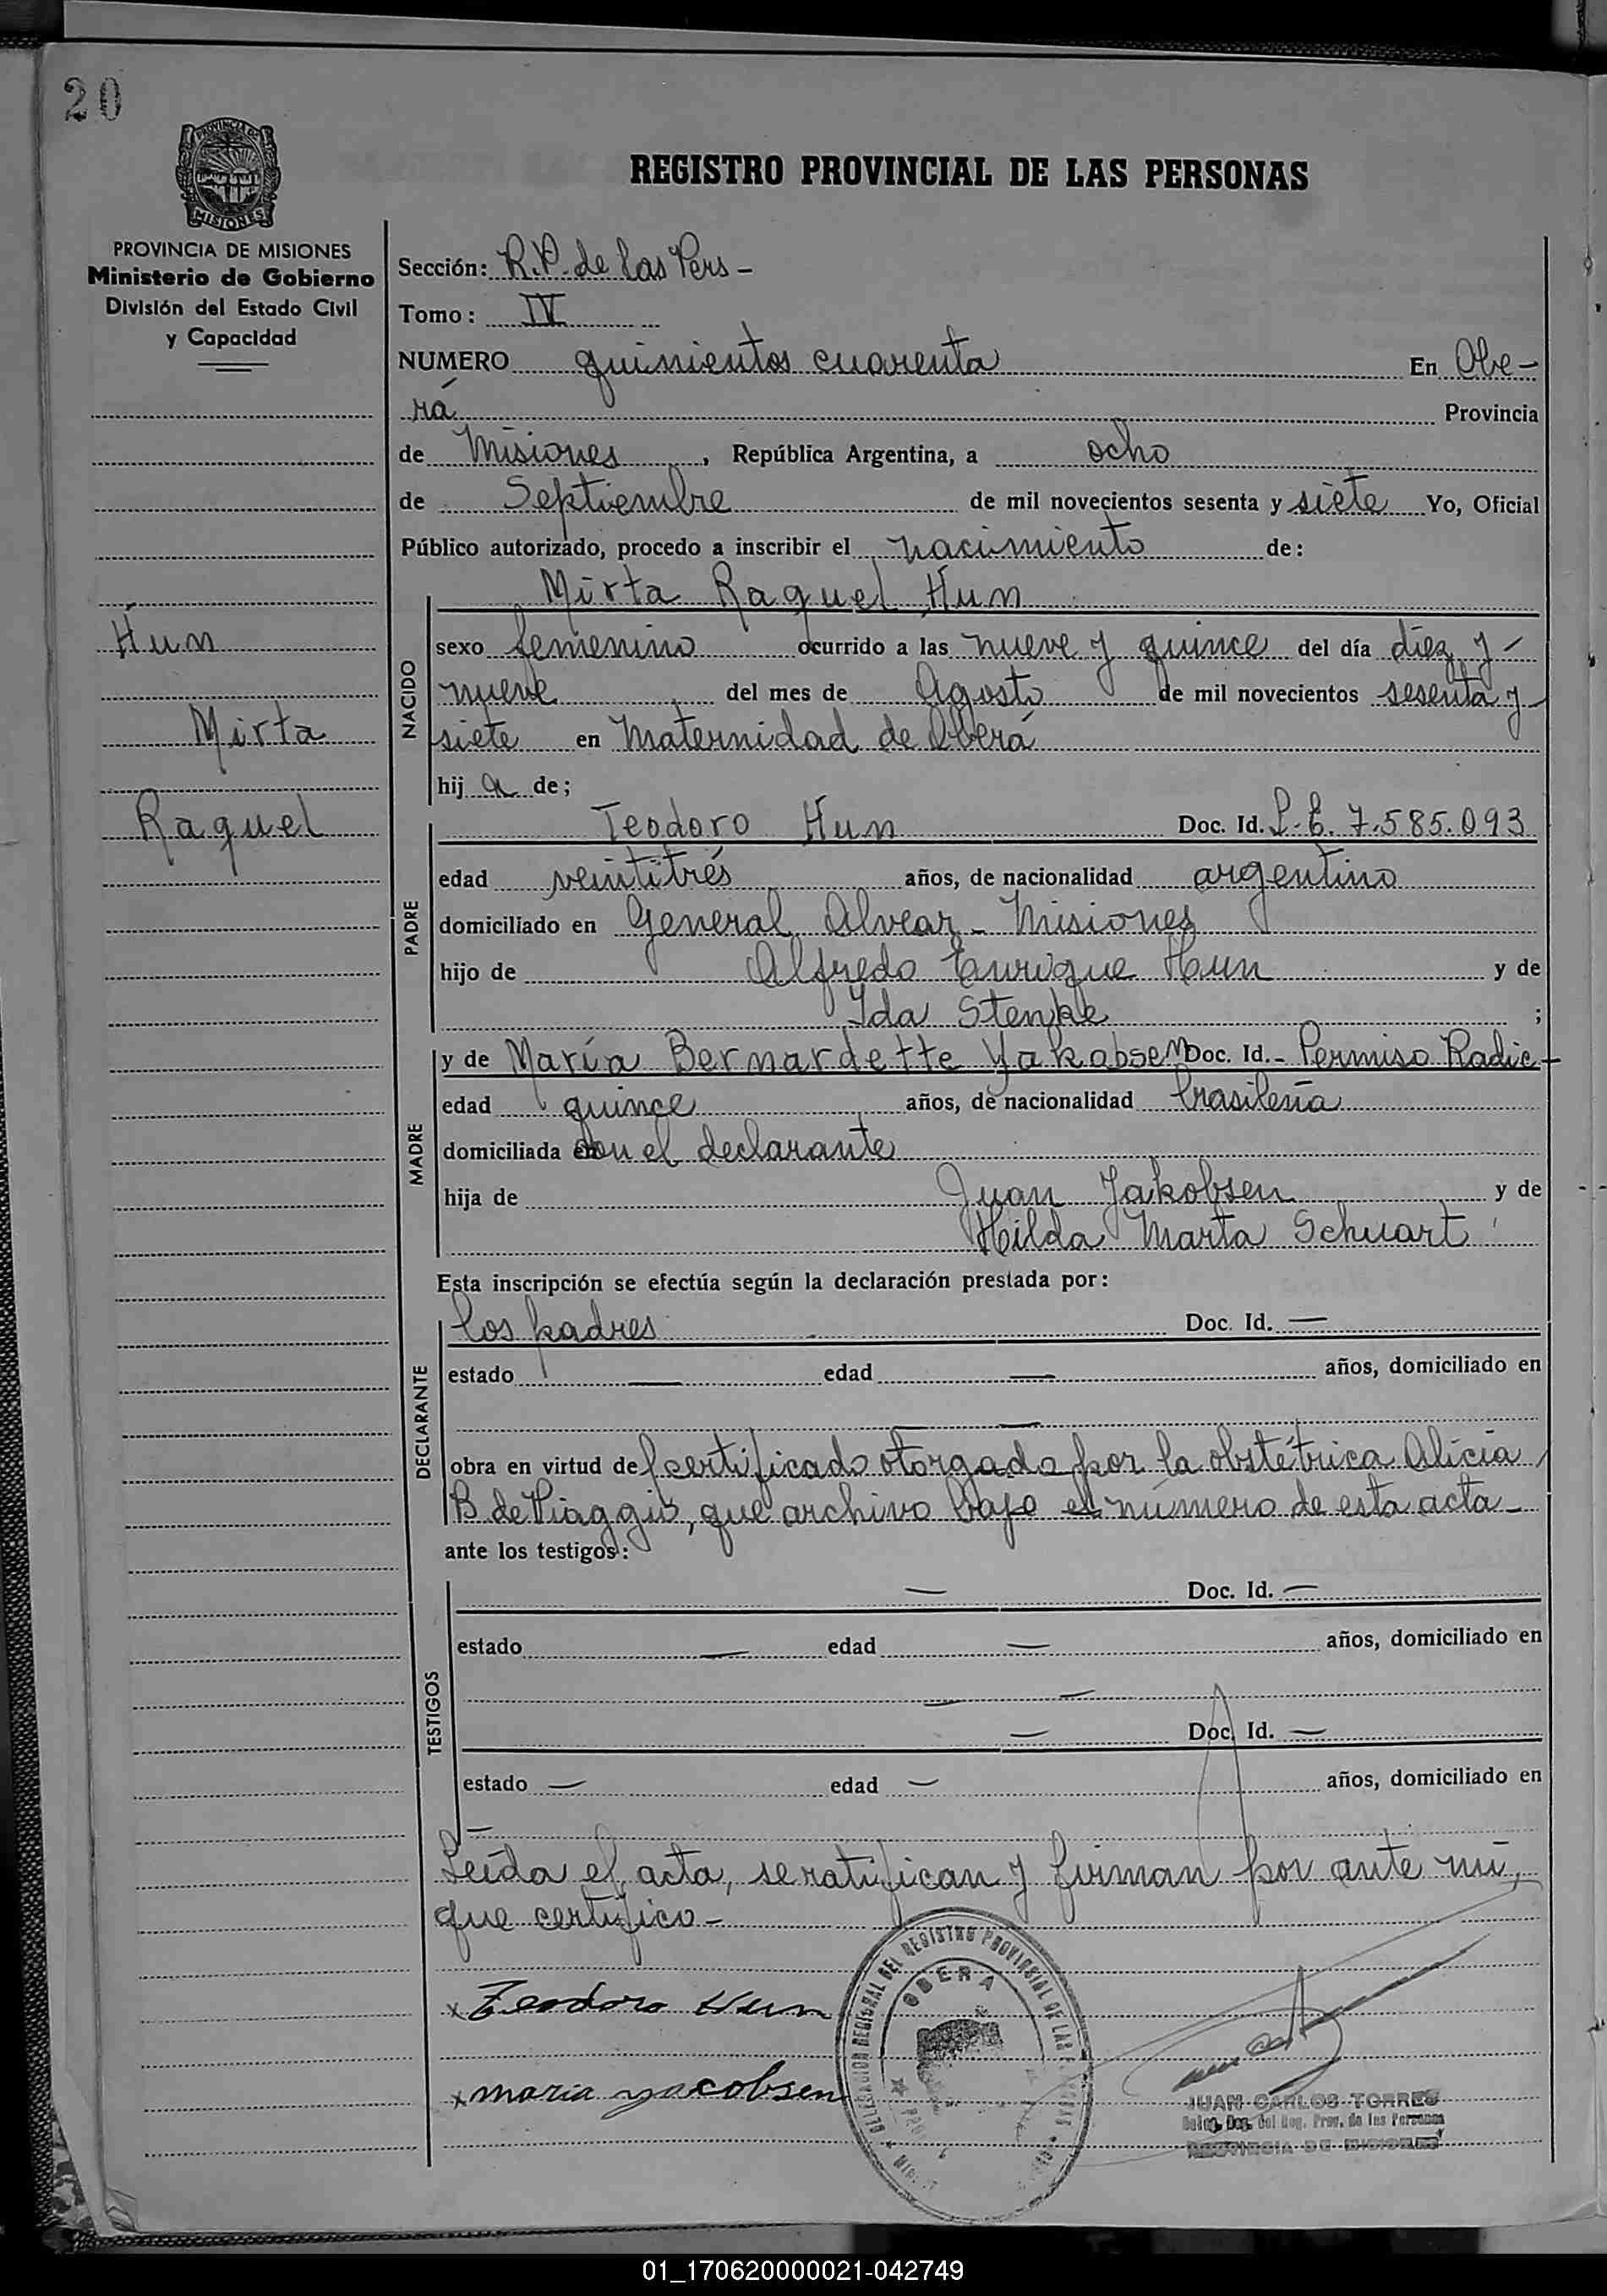 20
PROVINCIA DE
MISIONES
PROVINCIA DE MISIONES
Ministerio de Gobierno
División del Estado Civil
y Capacidad
Hun
Mirta
Raquel
REGISTRO PROVINCIAL DE LAS PERSONAS
Sección: R.P. de las Pers -
Tomo: IV
NUMERO quinientos cuarenta En Obe-
rá Provincia
de Misiones, República Argentina, a ocho
de Septiembre de mil novecientos sesenta y siete Yo, Oficial
Público autorizado, procedo a inscribir el nacimiento de:
Mirta Raquel Hun
NACIDO
sexo femenino ocurrido a las nueve y quince del día diez y -
nueve del mes de Agosto de mil novecientos sesenta y -
siete en Maternidad de Oberá
hij a de;
PADRE
Teodoro Hun Doc. Id. L.E. 7.585.093
edad veintitrés años, de nacionalidad argentino
domiciliado en General Alvear - Misiones
hijo de Alfredo Enrique Hun y de
Ida Stenke ;
MADRE
y de María Bernardette Yakobsen Doc. Id. - Permiso Radic -
edad quince años, de nacionalidad brasileña
domiciliada con el declarante
hija de Juan Yakobsen y de
Hilda Marta Schuart
Esta inscripción se efectúa según la declaración prestada por:
DECLARANTE
los padres Doc. Id. —
estado — edad — años, domiciliado en
— —
obra en virtud de certificado otorgado por la obstétrica Alicia
B. de Piaggio, que archivo bajo el número de esta acta -
ante los testigos:
TESTIGOS
— Doc. Id. —
estado — edad — años, domiciliado en
— —
— Doc. Id. —
estado — edad — años, domiciliado en
—
Leída el acta, se ratifican y firman por ante mí,
que certifico -
x Teodoro Hun
x maria yacobsen
DELEGACION REGISTRAL DEL REGISTRO PROVINCIAL DE LAS
OBERA
JUAN CARLOS TORRES
Reg. Prov. de las Personas
PROVINCIA DE MISIONES
01_170620000021-042749